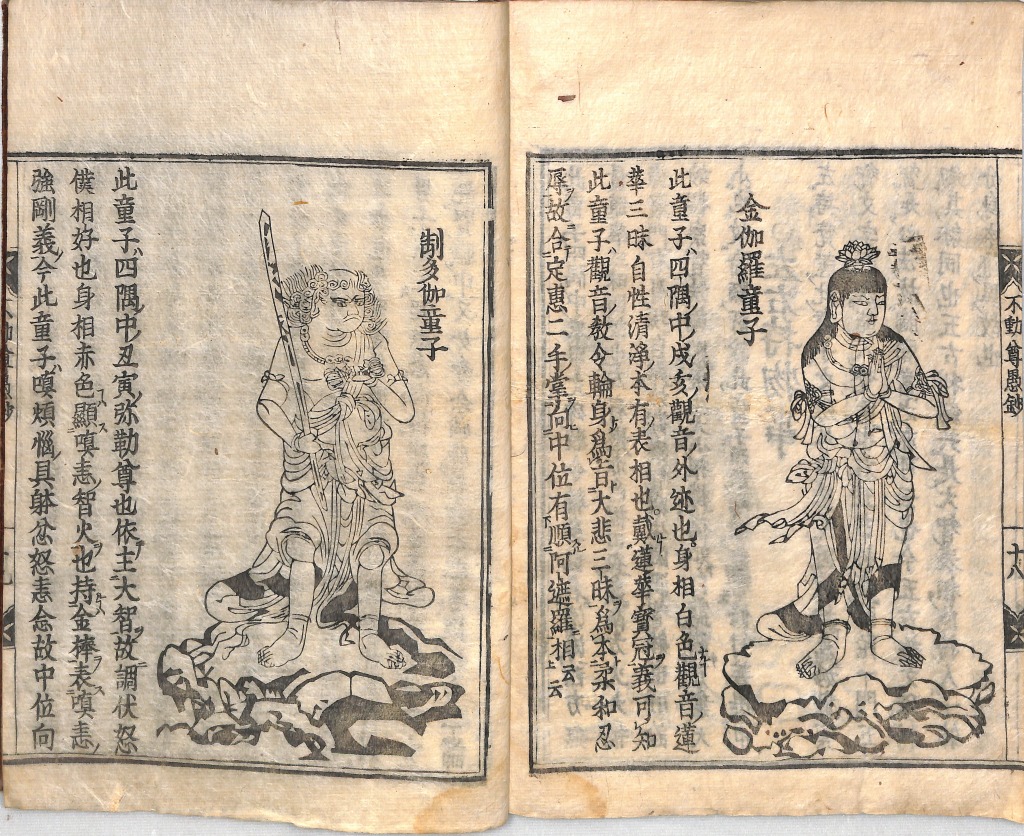 不動尊愚鈔
十八
金伽羅童子
此童子四隅中戌亥觀音外迹也身相白色觀音蓮
華三昧自性清淨本有表相也戴蓮華寶冠義可知
此童子觀音教令輪身爲古大悲三昧爲本柔和忍
辱故合定惠二手掌向中位有順阿遮羅相云云
制多伽童子
此童子四隅中丑寅弥勒尊也依主大智故調伏怒
僕相好也身相赤色顯嗔恚智火也持金棒表嗔恚
強剛義今此童子嗔煩惱具躰忿怒恚念故中位向